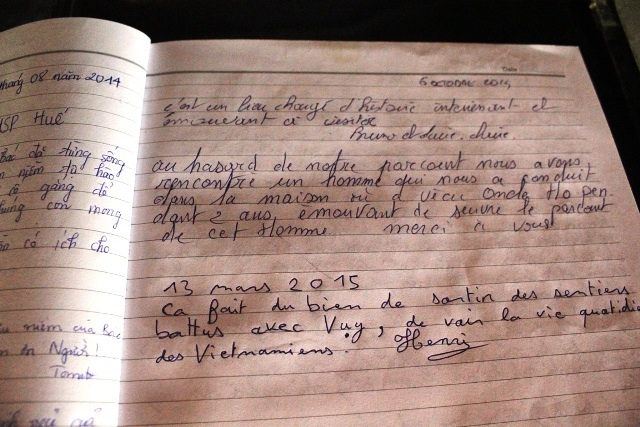 tháng 08 năm 2014
ĐHSP Huế
Bác đã từng sống
niềm tự hào
cố gắng để
con mong
có ích cho
niệm của Bác
ơn Người!
Date
6 octobre 2014
c'est un lieu chargé d'histoire intéressant et
émouvant à visiter
Bruno et Lucie.
au hasard de notre parcourt nous avons
rencontré un homme qui nous a conduit
dans la maison où a vécu Oncle Ho pen-
dant 2 ans émouvant de suivre le parcourt
de cet Homme merci à vous
13 mars 2015
Ca fait du bien de sortir des sentiers
battus avec Vuy, de voir la vie quotidie
des Vietnamiens. Henri